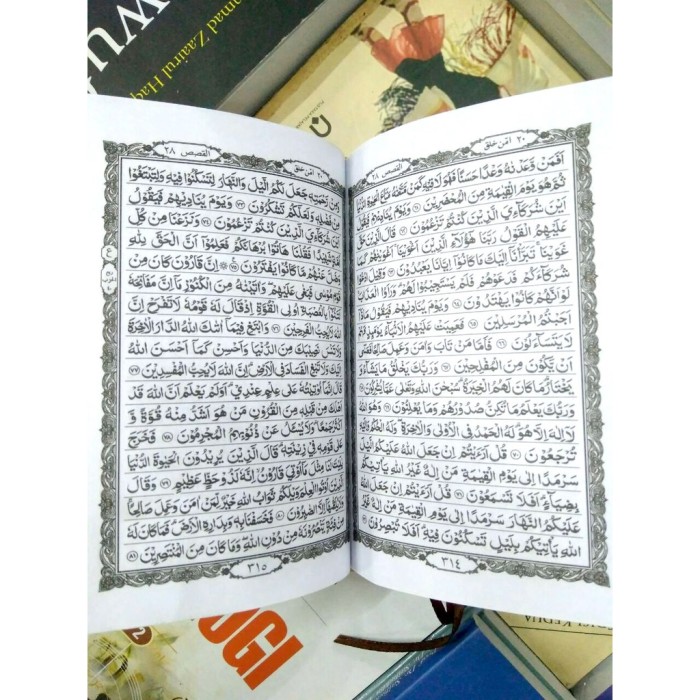 امن خلق ٢٠
القصص ٢٨
اَفَمَنْ وَّعَدْنٰهُ وَعْدًا حَسَنًا فَهُوَ لَاقِيْهِ كَمَنْ مَّتَّعْنٰهُ مَتَاعَ الْحَيٰوةِ الدُّنْيَا
ثُمَّ هُوَ يَوْمَ الْقِيٰمَةِ مِنَ الْمُحْضَرِيْنَ ٦١ وَيَوْمَ يُنَادِيْهِمْ فَيَقُوْلُ
اَيْنَ شُرَكَآءِيَ الَّذِيْنَ كُنْتُمْ تَزْعُمُوْنَ ٦٢ قَالَ الَّذِيْنَ حَقَّ
عَلَيْهِمُ الْقَوْلُ رَبَّنَا هٰٓؤُلَآءِ الَّذِيْنَ اَغْوَيْنَا اَغْوَيْنٰهُمْ كَمَا
غَوَيْنَا تَبَرَّأْنَآ اِلَيْكَ مَا كَانُوْٓا اِيَّانَا يَعْبُدُوْنَ ٦٣ وَقِيْلَ ادْعُوْا
شُرَكَآءَكُمْ فَدَعَوْهُمْ فَلَمْ يَسْتَجِيْبُوْا لَهُمْ وَرَاَوُا الْعَذَابَ
لَوْ اَنَّهُمْ كَانُوْا يَهْتَدُوْنَ ٦٤ وَيَوْمَ يُنَادِيْهِمْ فَيَقُوْلُ مَاذَآ
اَجَبْتُمُ الْمُرْسَلِيْنَ ٦٥ فَعَمِيَتْ عَلَيْهِمُ الْاَنْۢبَآءُ يَوْمَئِذٍ فَهُمْ
لَا يَتَسَآءَلُوْنَ ٦٦ فَاَمَّا مَنْ تَابَ وَاٰمَنَ وَعَمِلَ صَالِحًا فَعَسٰٓى
اَنْ يَّكُوْنَ مِنَ الْمُفْلِحِيْنَ ٦٧ وَرَبُّكَ يَخْلُقُ مَا يَشَآءُ وَ
يَخْتَارُ مَا كَانَ لَهُمُ الْخِيَرَةُ سُبْحٰنَ اللّٰهِ وَتَعٰلٰى عَمَّا يُشْرِكُوْنَ ٦٨
وَرَبُّكَ يَعْلَمُ مَا تُكِنُّ صُدُوْرُهُمْ وَمَا يُعْلِنُوْنَ ٦٩ وَهُوَ اللّٰهُ
لَآ اِلٰهَ اِلَّا هُوَ لَهُ الْحَمْدُ فِى الْاُوْلٰى وَالْاٰخِرَةِ وَلَهُ الْحُكْمُ وَاِلَيْهِ
تُرْجَعُوْنَ ٧٠ قُلْ اَرَءَيْتُمْ اِنْ جَعَلَ اللّٰهُ عَلَيْكُمُ الَّيْلَ
سَرْمَدًا اِلٰى يَوْمِ الْقِيٰمَةِ مَنْ اِلٰهٌ غَيْرُ اللّٰهِ يَأْتِيْكُمْ
بِضِيَآءٍ اَفَلَا تَسْمَعُوْنَ ٧١ قُلْ اَرَءَيْتُمْ اِنْ جَعَلَ اللّٰهُ
عَلَيْكُمُ النَّهَارَ سَرْمَدًا اِلٰى يَوْمِ الْقِيٰمَةِ مَنْ اِلٰهٌ غَيْرُ
اللّٰهِ يَأْتِيْكُمْ بِلَيْلٍ تَسْكُنُوْنَ فِيْهِ اَفَلَا تُبْصِرُوْنَ ٧٢
٣١٤
امن خلق ٢٠
القصص ٢٨
وَمِنْ رَّحْمَتِهٖ جَعَلَ لَكُمُ الَّيْلَ وَالنَّهَارَ لِتَسْكُنُوْا فِيْهِ وَلِتَبْتَغُوْا
مِنْ فَضْلِهٖ وَلَعَلَّكُمْ تَشْكُرُوْنَ ٧٣ وَيَوْمَ يُنَادِيْهِمْ فَيَقُوْلُ
اَيْنَ شُرَكَآءِيَ الَّذِيْنَ كُنْتُمْ تَزْعُمُوْنَ ٧٤ وَنَزَعْنَا مِنْ كُلِّ
اُمَّةٍ شَهِيْدًا فَقُلْنَا هَاتُوْا بُرْهَانَكُمْ فَعَلِمُوْٓا اَنَّ الْحَقَّ لِلّٰهِ
وَضَلَّ عَنْهُمْ مَّا كَانُوْا يَفْتَرُوْنَ ٧٥ اِنَّ قَارُوْنَ كَانَ مِنْ
قَوْمِ مُوْسٰى فَبَغٰى عَلَيْهِمْ وَاٰتَيْنٰهُ مِنَ الْكُنُوْزِ مَآ اِنَّ مَفَاتِحَهٗ
لَتَنُوْٓاُ بِالْعُصْبَةِ اُولِى الْقُوَّةِ اِذْ قَالَ لَهٗ قَوْمُهٗ لَا تَفْرَحْ اِنَّ
اللّٰهَ لَا يُحِبُّ الْفَرِحِيْنَ ٧٦ وَابْتَغِ فِيْمَآ اٰتٰىكَ اللّٰهُ الدَّارَ الْاٰخِرَةَ
وَلَا تَنْسَ نَصِيْبَكَ مِنَ الدُّنْيَا وَاَحْسِنْ كَمَآ اَحْسَنَ اللّٰهُ
اِلَيْكَ وَلَا تَبْغِ الْفَسَادَ فِى الْاَرْضِ اِنَّ اللّٰهَ لَا يُحِبُّ الْمُفْسِدِيْنَ ٧٧
قَالَ اِنَّمَآ اُوْتِيْتُهٗ عَلٰى عِلْمٍ عِنْدِيْ اَوَلَمْ يَعْلَمْ اَنَّ اللّٰهَ قَدْ
اَهْلَكَ مِنْ قَبْلِهٖ مِنَ الْقُرُوْنِ مَنْ هُوَ اَشَدُّ مِنْهُ قُوَّةً وَّ
اَكْثَرُ جَمْعًا وَلَا يُسْئَلُ عَنْ ذُنُوْبِهِمُ الْمُجْرِمُوْنَ ٧٨ فَخَرَجَ
عَلٰى قَوْمِهٖ فِيْ زِيْنَتِهٖ قَالَ الَّذِيْنَ يُرِيْدُوْنَ الْحَيٰوةَ الدُّنْيَا
يٰلَيْتَ لَنَا مِثْلَ مَآ اُوْتِيَ قَارُوْنُ اِنَّهٗ لَذُوْ حَظٍّ عَظِيْمٍ ٧٩ وَقَالَ
الَّذِيْنَ اُوْتُوا الْعِلْمَ وَيْلَكُمْ ثَوَابُ اللّٰهِ خَيْرٌ لِّمَنْ اٰمَنَ وَعَمِلَ صَالِحًا
وَلَا يُلَقّٰىهَآ اِلَّا الصّٰبِرُوْنَ ٨٠ فَخَسَفْنَا بِهٖ وَبِدَارِهِ الْاَرْضَ فَمَا كَانَ لَهٗ
مِنْ فِئَةٍ يَّنْصُرُوْنَهٗ مِنْ دُوْنِ اللّٰهِ وَمَا كَانَ مِنَ الْمُنْتَصِرِيْنَ ٨١
٣١٥
ammad Zaairul Haq
WU
OGI
2
EDISI KEDUA